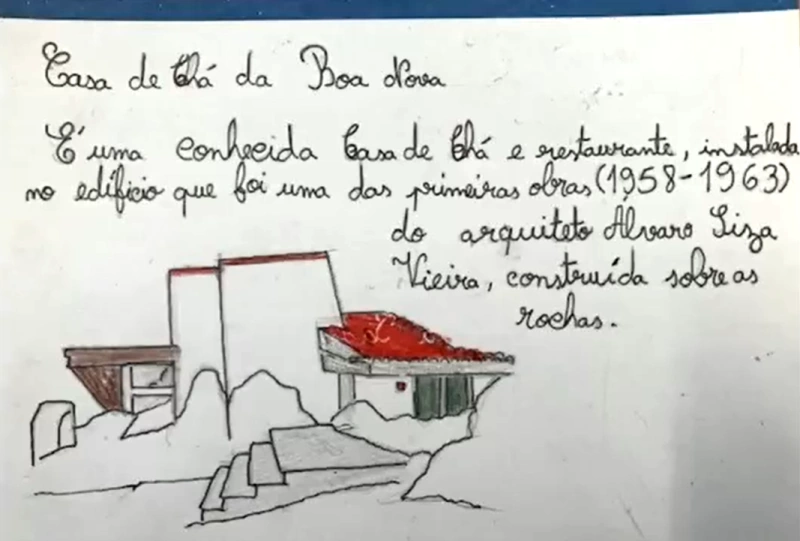 Casa de Chá da Boa Nova
É uma conhecida Casa de Chá e restaurante, instalada
no edíficio que foi uma das primeiras obras (1958-1963)
do arquiteto Álvaro Siza
Vieira, construída sobre as
rochas.